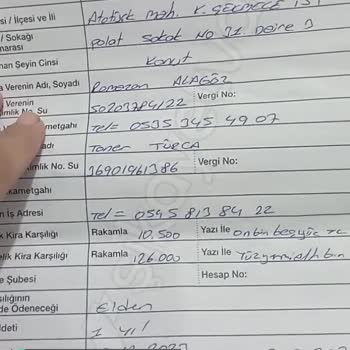 si / İlçesi ve İli Atatürk mah. K. ÇEKMECE İST
/ Sokağı Polat Sokak No 31 Daire 3
marası
nan Şeyin Cinsi Konut
a Verenin Adı, Soyadı Ramazan ALAGÖZ
Verenin 50203784122 Vergi No:
mlik No. Su
metgahı Tel= 0535 345 49 07
adı Taner TURCA
imlik No. Su 36901961386 Vergi No:
kametgahı
n İş Adresi Tel= 0545 813 84 22
k Kira Karşılığı Rakamla 10.500 Yazı İle onbin beşyüz TL
lik Kira Karşılığı Rakamla 126.000 Yazı İle Yüzyirmialtıbin
e Şubesi Hesap No:
şılığının Elden
de Ödeneceği
ddeti 1 Yıl